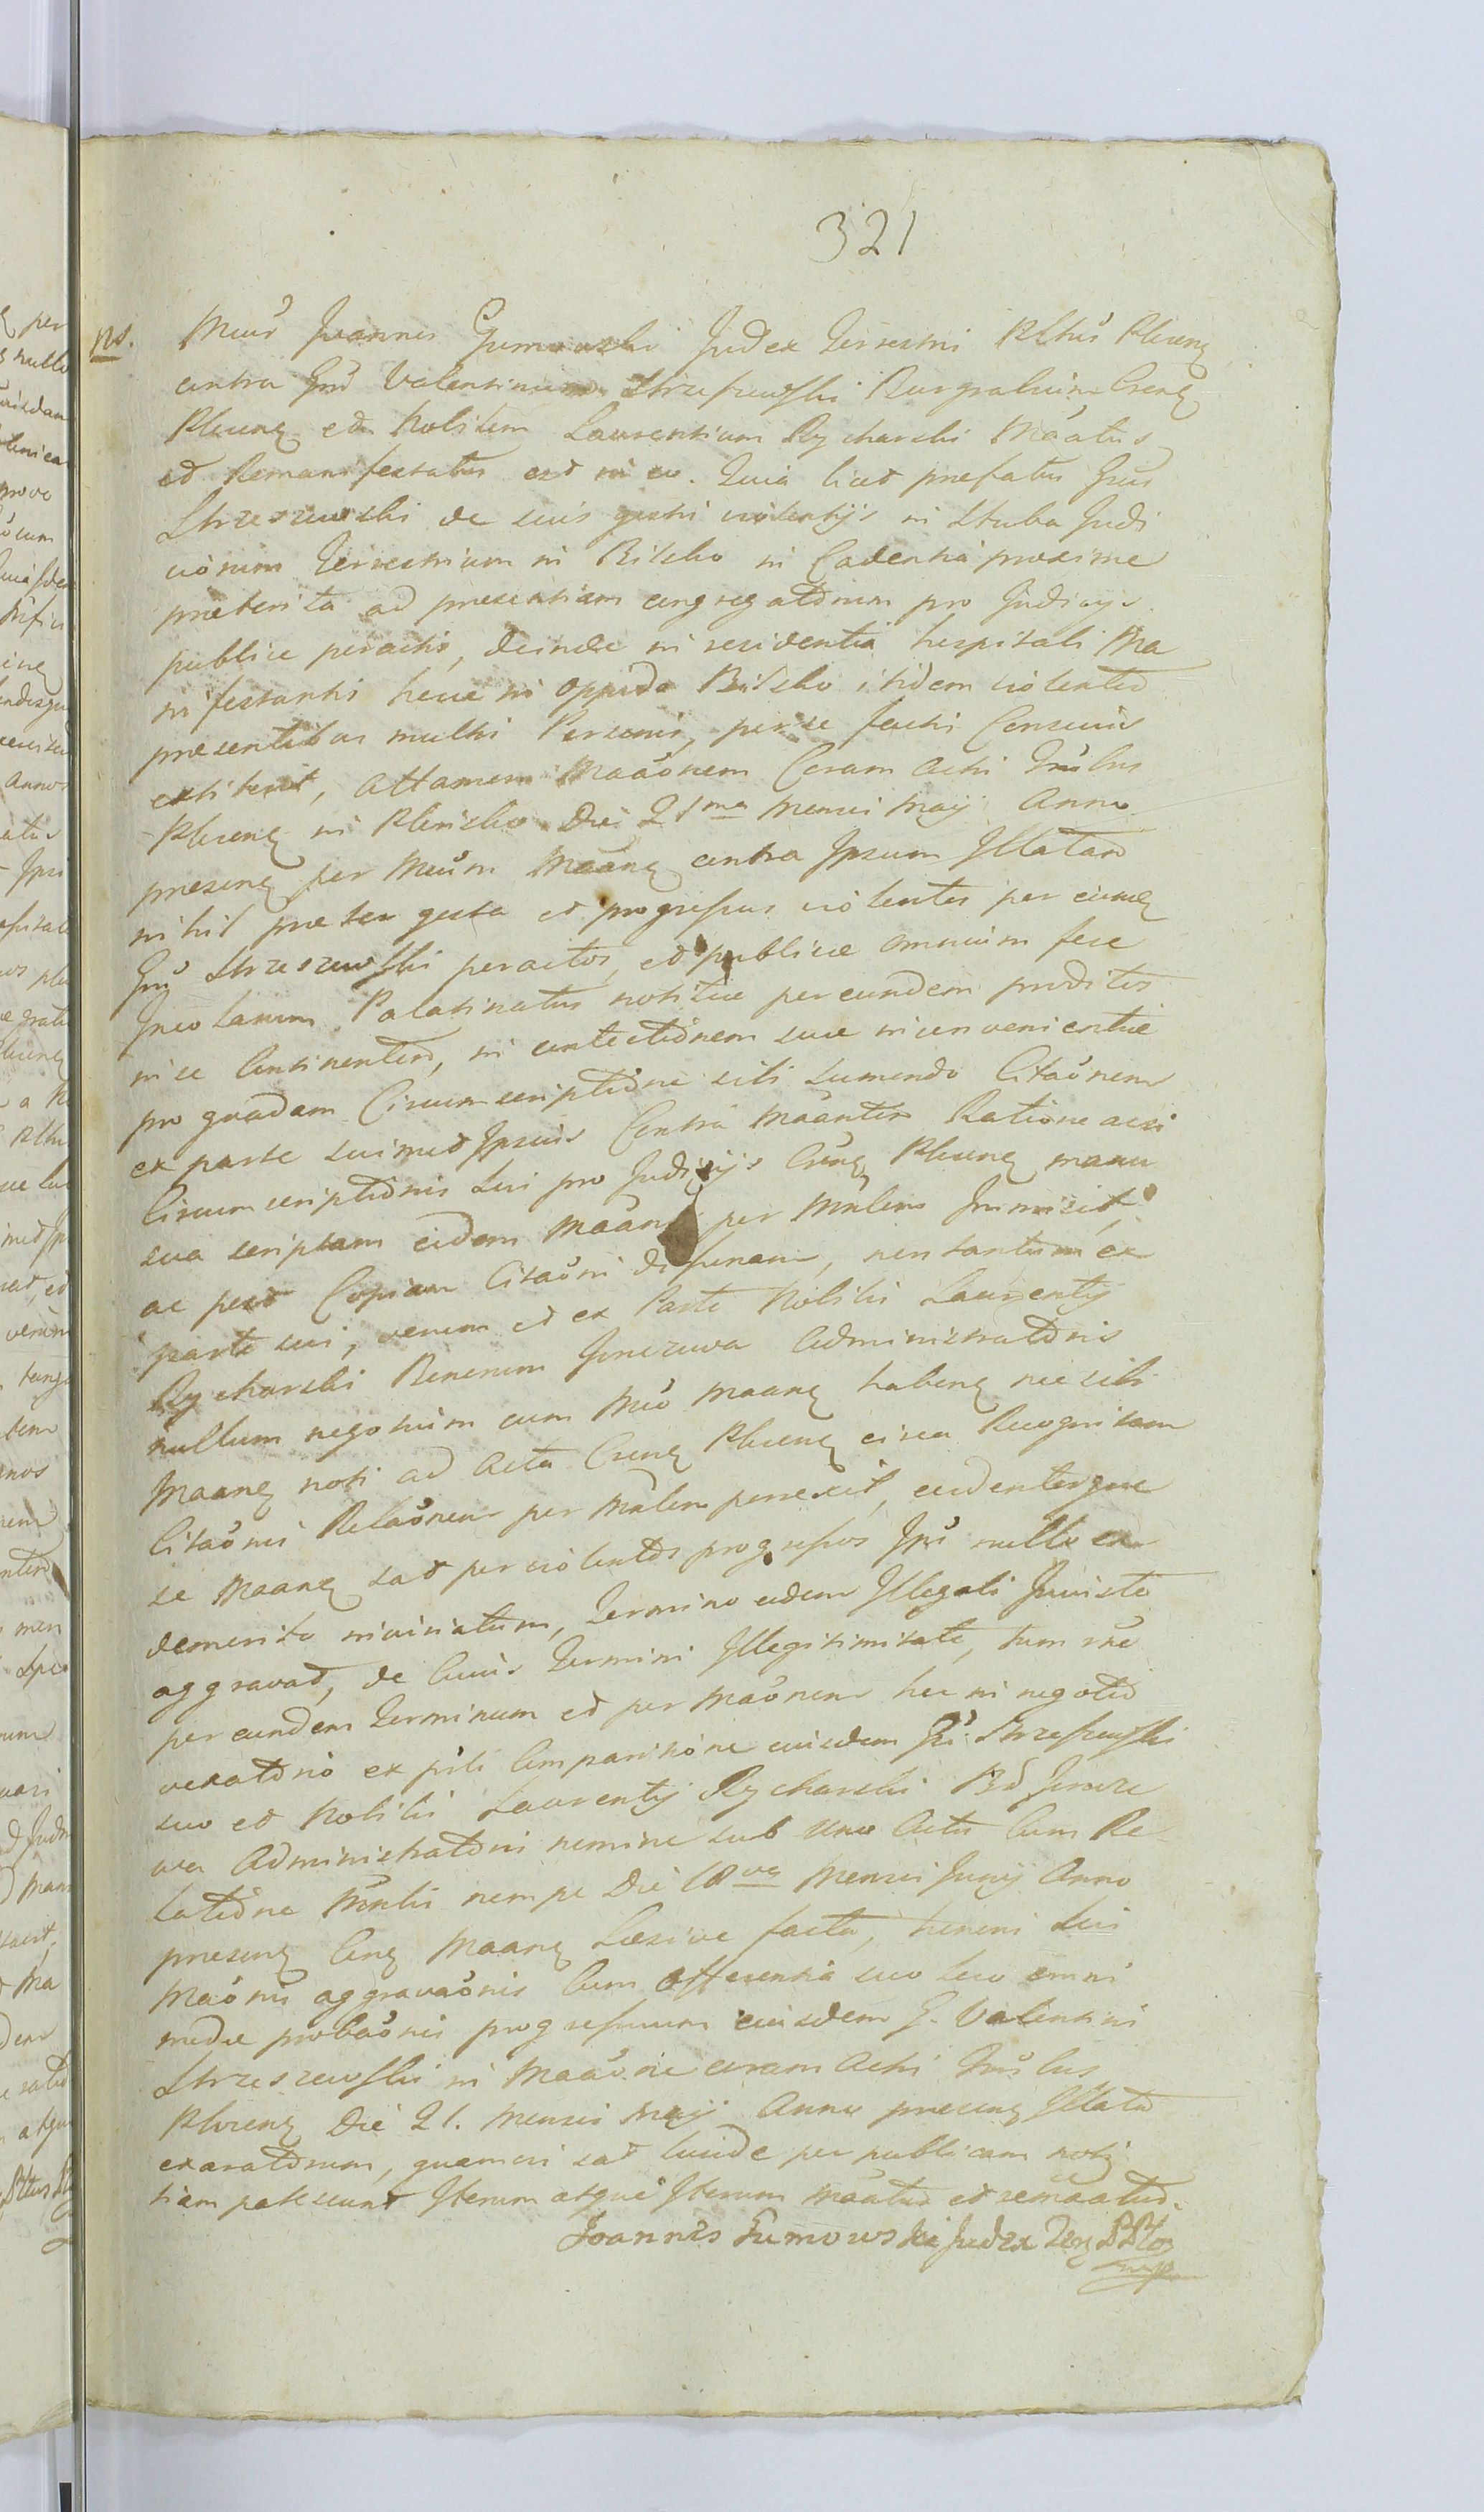 321
ns. Mcus Joannes Gumowski Judex Terrestris Pltus Plocen
contra Gnd Valentinum Strzeszewski Burgrabium Cren
Plocen et Nobilem Laurentium Rycharski Maatus
et Remanifestatus est in eo. Quia licet prefatus Gnus
Strzeszewski de suis gestis violentijs in Stuba Judi
ciorum Terrestrium in Bilsko in Cadentia proxime
præterita ad presentiam congregatorum pro Judicijs
publice peractis, deinde in residentia hospitali Ma
nifestantis heic in oppido Bilsko itidem violenter
præsentibus multis Personis, per se factis Conscius
extiterit, attamen Maaonem Coram Actis Tribus
Plocen in Plonsko Die 21ma Mensis Maij Anno
presen per Mcum Maan contra Ipsum Illatam
nihil præter gesta et progressus violentos per eum
Gnu Strzeszewski peractos, et publicæ omnium fere
Incolarum Palatinatus notitiæ per eundem proditos
in se Continentem, in contectionem suæ inconvenientiæ
pro quadam Circumscriptione sibi sumendo Citaonem
ex parte suimet Ipsius Contra Maantem Ratione acsi
Circumscriptionis Sui pro Judicijs Cren Plocen manu
sua scriptam eidem Maan per Mnlem Immisit,
ac post Copiam Citaonis dissonam, non tantum ex
parte sui, verum et ex Parte Nobilis Laurentij
Rycharski Bonorum Administratoris
nullum negotium cum Mco Maan haben nec sibi
Maan noti ad Acta Cren Plocen circa Recognitam
Citaonis Relaonem per Mnlem porrexit, evidenterque
se Maan sat per violentos progressus Ipsi nullo ex
demerito iniuriatum, Termino eodem Illegali Iniuste
aggravat, de Cuius Termini Illegitimitate, tum
per eundem Terminum et per Maonem hec in negotio
vexatorio ex Comparitione eiusdem Gi Strzeszewski
suo et Nobilis Laurentij Rycharski
Administratoris nomine sub uno Actu Cum Re
latione Mnlis nempe Die 18va Mensis Junij Anno
presen Maan Læsive facta, Sui
Maonis aggravaonis Cum Offerentia suo loco omni
modæ probaonis progressuum eiusdem G. Valentini
Strzeszewski in Maaone coram Actis Tribus
Plocen Die 21. Mensis Maij Anno presen Illata
exaratorum, quamvis sat lucide per publicam noti
tiam patescunt Iterum atque Iterum Maatur et remaatur.
Joannes Gumowski Judex